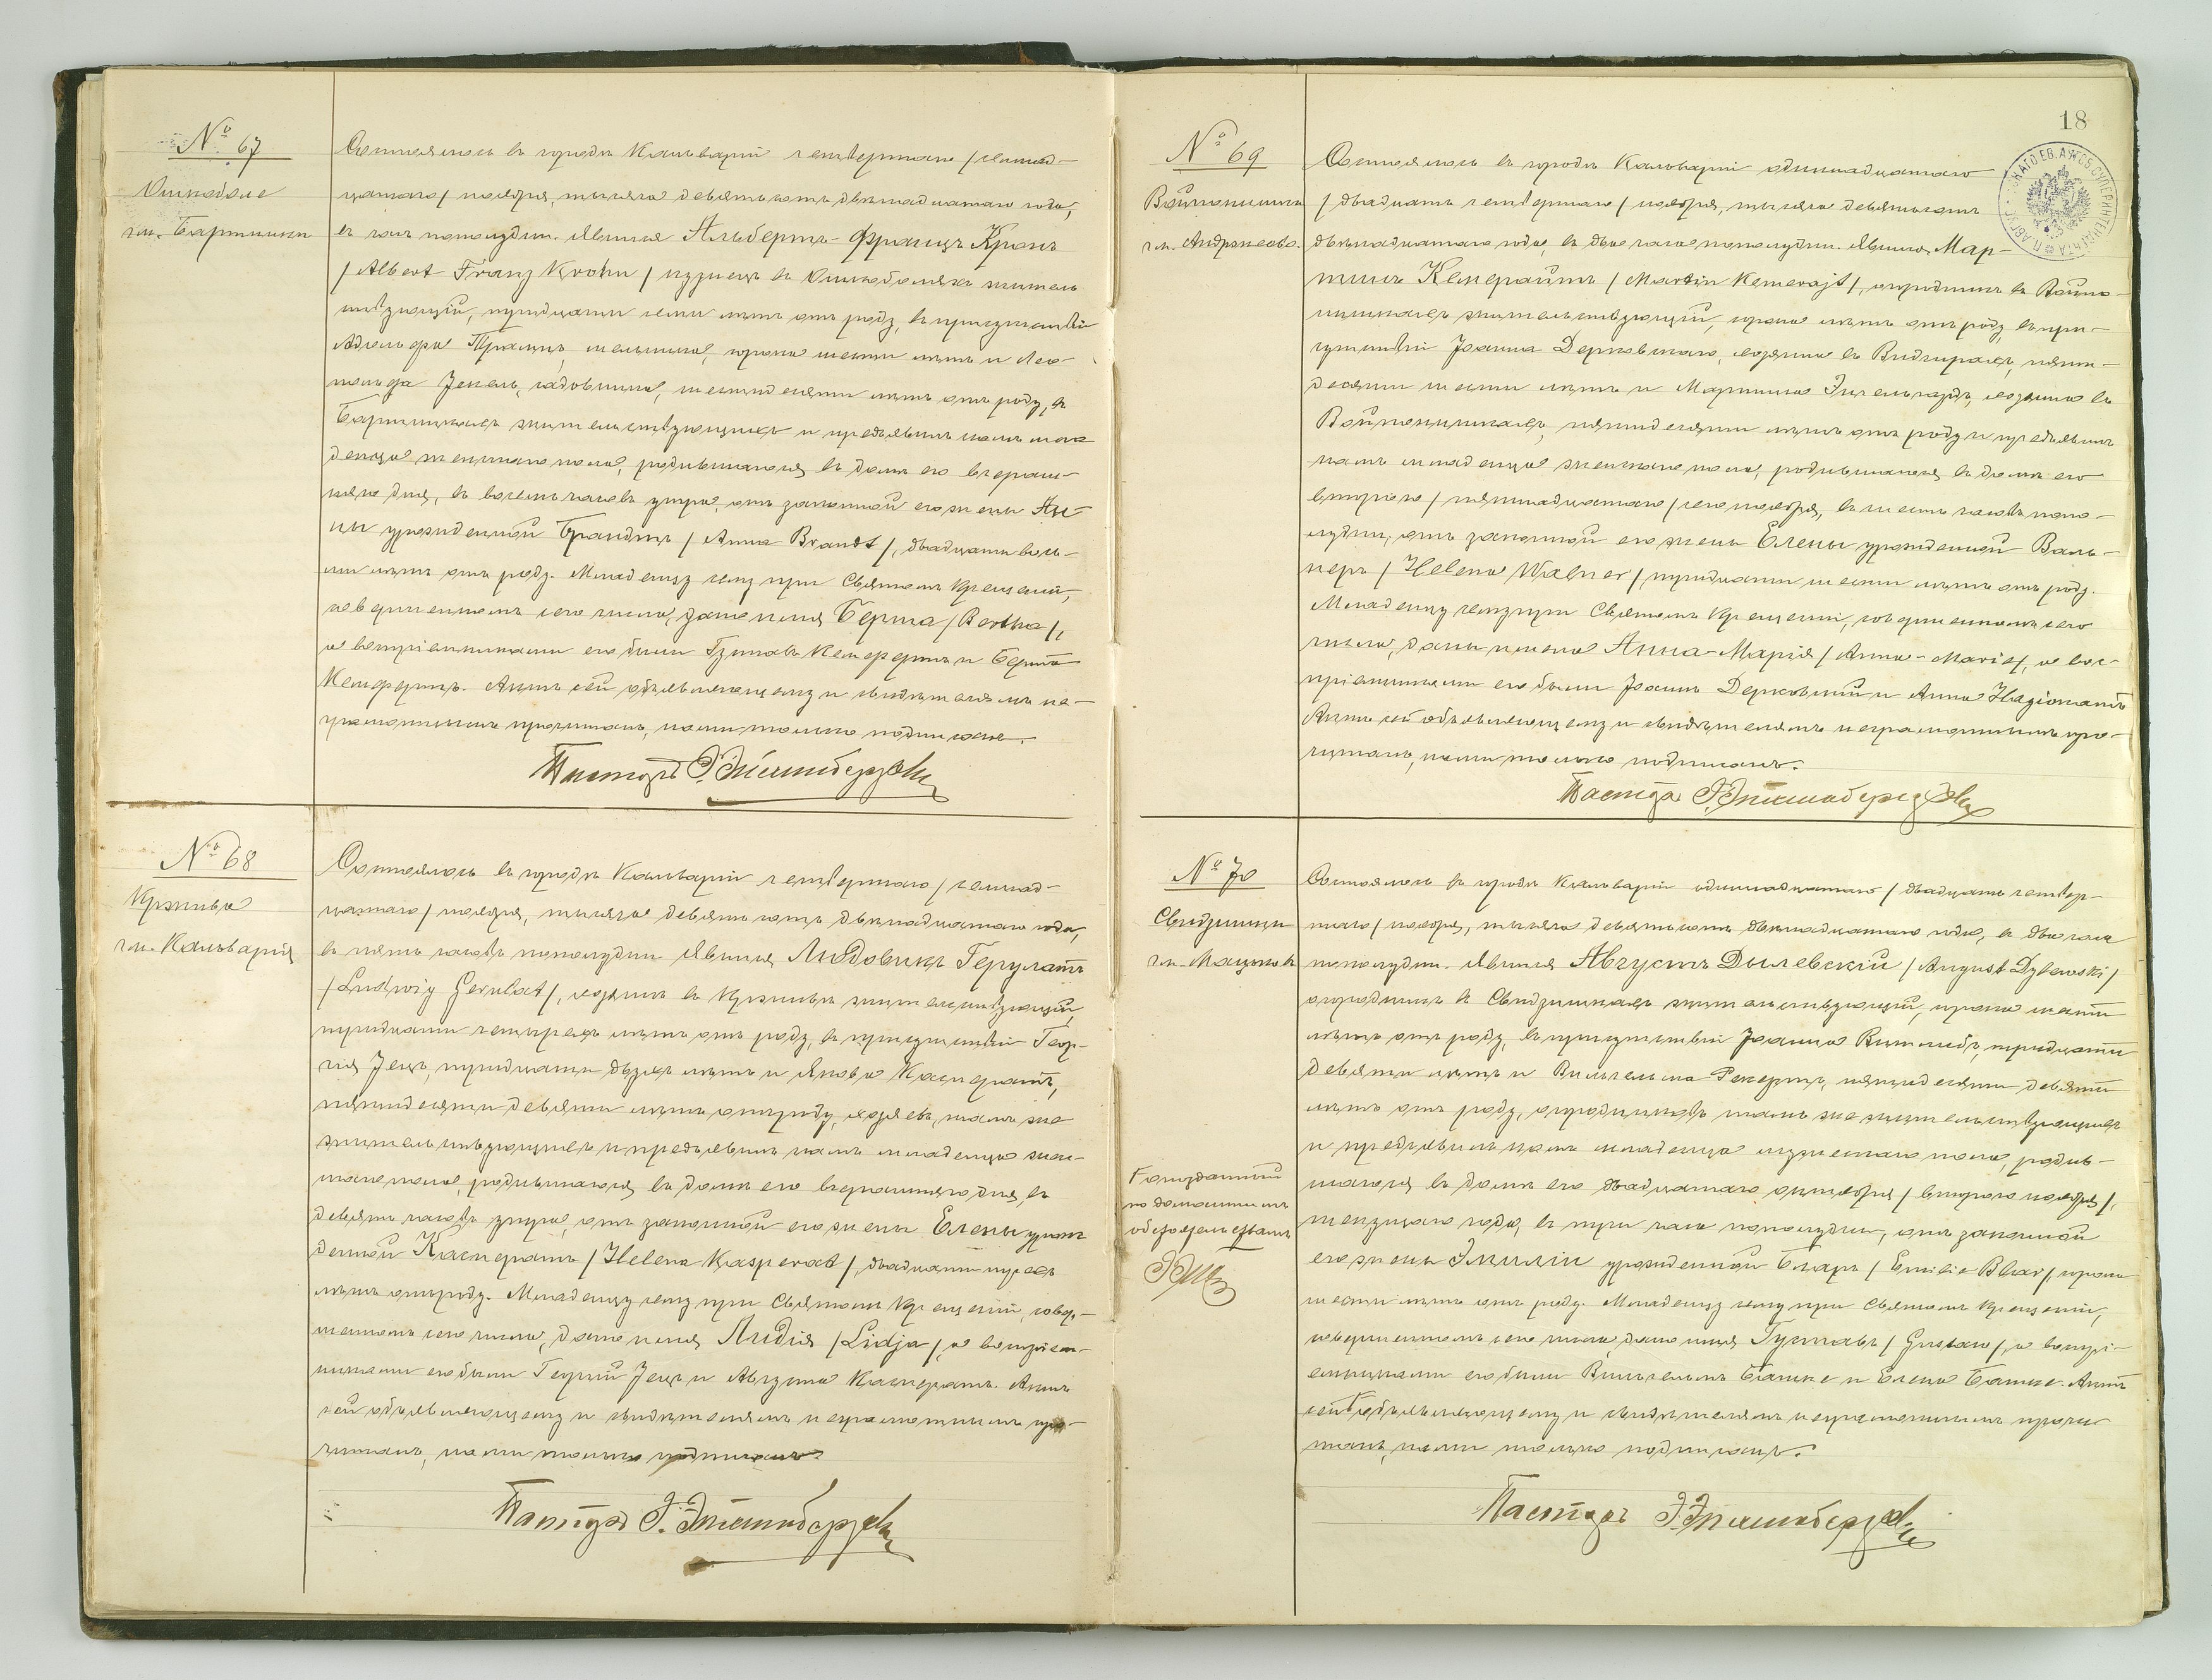 № 67
гм. Бартники
Состоялось въ городѣ Кальваріи четвертаго /семнад-
цатаго/ ноября, тысяча девятьсотъ двѣнадцатаго года,
въ часъ пополудни. Явился Альбертъ-Францъ Кронъ
/Albert Franz Krohn/ кузнецъ въ житель
ствующій, тридцати семи лѣтъ отъ роду, въ присутствіи
Адольфа мельника, сорока шести лѣтъ и Лео-
польда садовника, шестидесяти лѣтъ отъ роду, въ
Бартникахъ жительствующихъ и предъявилъ намъ мла
денца женскаго пола, родившагося въ домѣ его вчераш-
няго дня, въ восемь часовъ утра, отъ законной его жены Ан-
ны урожденной Брандтъ /Anna Brandt/, двадцати вось-
ми лѣтъ отъ роду. Младенцу сему при Святомъ Крещеніи,
совершенномъ сего числа, дано имя Берта /Bertha/,
а воспріемниками его были Густавъ Кемфертъ и Берта
Кемфертъ. Актъ сей объявляющему и свидѣтелямъ не-
грамотнымъ прочитанъ, нами только подписанъ.
Пасторъ
№ 68
Кржива
гм. Кальварія
Состоялось въ городѣ Кальваріи четвертаго /семнад-
цатаго/ ноября, тысяча девятьсотъ двѣнадцатаго года,
въ пять часовъ пополудни Явился Людовикъ Герулатъ
/Ludwig Gerulat/, хозяинъ въ Крживѣ жительствующій,
тридцати четырехъ лѣтъ отъ роду, въ присутствіи Геор-
гія Јецъ, тридцати двухъ лѣтъ и Якова Касператъ,
пятидесяти девяти лѣтъ отъ роду, хозяевъ, тамъ же
жительствующихъ и предъявилъ намъ младенца жен-
скаго пола, родившагося въ домѣ его вчерашняго дня, въ
девять часовъ утра, отъ законной его жены Елены урож
денной Касператъ /Helena Kasperat/, двадцати трехъ
лѣтъ отъ роду. Младенцу сему при Святомъ Крещеніи, совер-
шенномъ сего числа, дано имя Лидія /Lidja/, а воспріем-
никами его были Георгій Јецъ и Августа Касператъ. Актъ
сей объявляющему и свидѣтелямъ неграмотнымъ про-
читанъ, нами только подписанъ.
Пасторъ
18
№ 69
гм. Андржеево.
Состоялось въ городѣ Кальваріи одиннадцатаго
/двадцать четвертаго/ ноября, тысяча девятьсотъ
двѣнадцатаго года, въ два часа пополудни. Явился Мар-
тинъ Кемерайтъ /Martin Kemerajt/, огородникъ въ Войпо-
нишкахъ жительствующій, сорока лѣтъ отъ роду, въ при-
сутствіи Јоанна Дерковскаго, хозяина въ пяти-
десяти шести лѣтъ и Мартина Энгельгардъ, хозяина въ
Войпонишкахъ, пятидесяти лѣтъ отъ роду и предъявилъ
намъ младенца женскаго пола, родившагося въ домѣ его
второго /пятнадцатаго/ сего ноября, въ шесть часовъ попо-
лудни, отъ законной его жены Елены урожденной Валь-
неръ /Helena Walner/ тридцати шести лѣтъ отъ роду.
Младенцу сему при Святомъ Крещеніи, совершенномъ сего
числа, даны имена Анна-Марія /Anna-Maria/, а вос-
пріемниками его были Јоаннъ Дерковскій и Анна
Актъ сей объявляющему и свидѣтелямъ неграмотнымъ про-
читанъ, нами только подписанъ.
Пасторъ
№ 70
Свидзишки
Состоялось въ городѣ Кальваріи одиннадцатаго /двадцать четвер-
таго/ ноября, тысяча девятьсотъ двѣнадцатаго года, въ два часа
пополудни. Явился Августъ Дылевскій /August Dylewski/
огородникъ въ Свидзишкахъ жительствующій, сорока шести
лѣтъ отъ роду, въ присутствіи Јоанна тридцати
девяти лѣтъ и Вильгельма Рекертъ, пятидесяти девяти
лѣтъ отъ роду, огородниковъ тамъ же жительствующихъ
и предъявилъ намъ младенца мужескаго пола, родив-
шагося въ домѣ его двадцатаго октября /второго ноября/,
текущаго года, въ три часа пополудни, отъ законной
его жены Эмиліи урожденной Бляръ /Emilie Blar/, сорока
шести лѣтъ отъ роду. Младенцу сему при Святомъ Крещеніи,
совершенномъ сего числа дано имя Густавъ /Gustaw/, а воспрі-
емниками его были Вильгельмъ Башке и Елена Башке. Актъ
сей объявляющему и свидѣтелямъ неграмотнымъ прочи-
танъ, нами только подписанъ.
по домашнимъ
обстоятельствамъ
Пасторъ